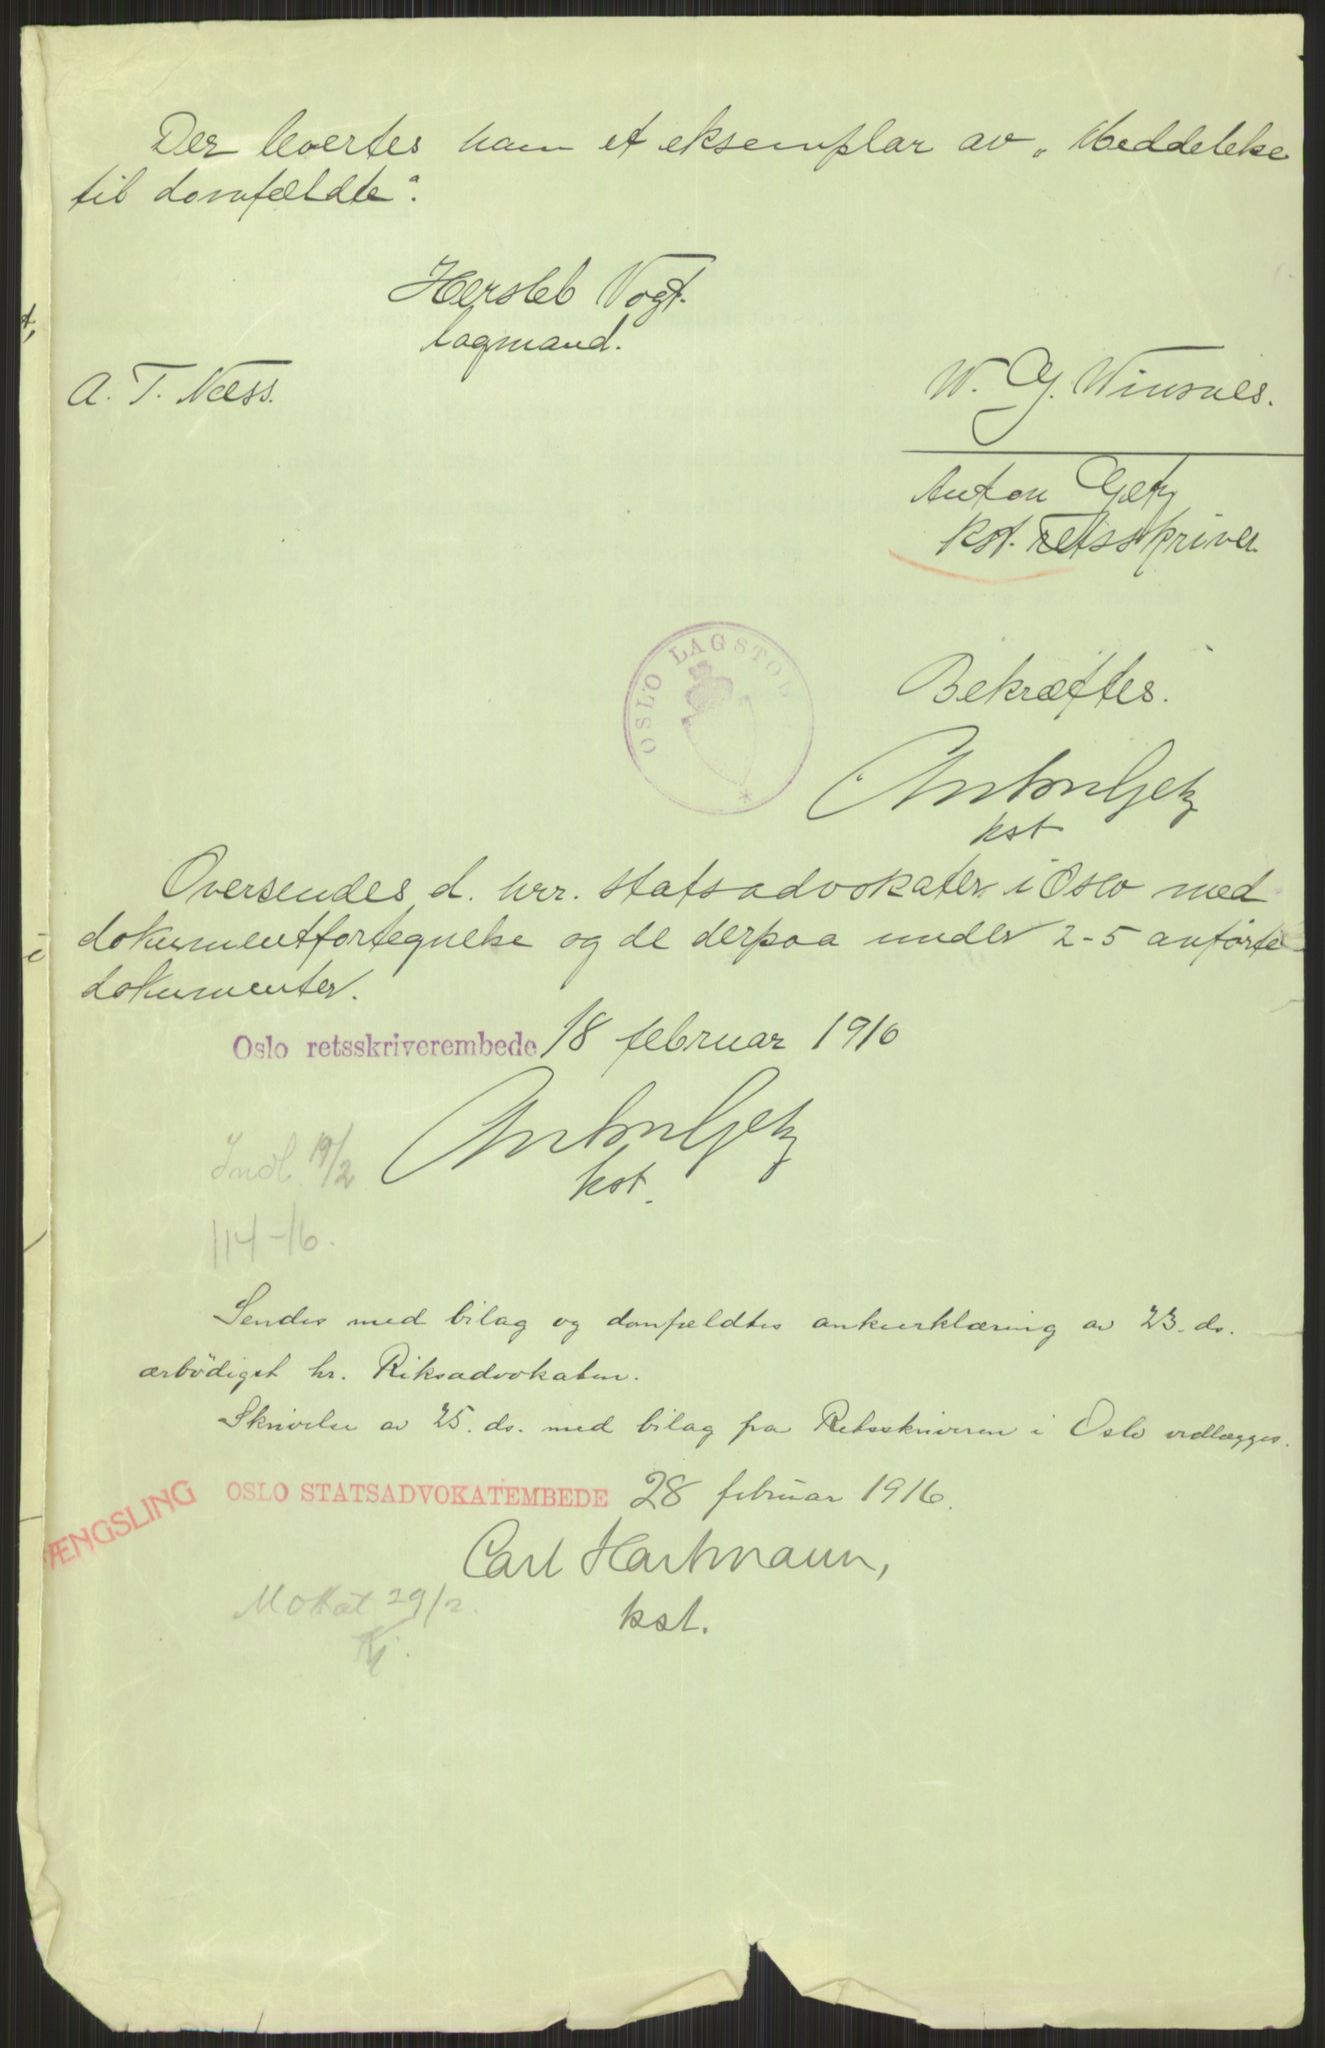 Der levertes ham et eksemplar av „Meddelelse
til domfældte".
Hersleb Vogt.
lagmand.
A. T. Næss.
W. G. Winsnes.
Anton Getz
kst. retsskriver
OSLO LAGSTOL
Bekræftes.
Anton Getz
kst
Oversendes d. hrr. statsadvokater i Oslo med
dokumentfortegnelse og de derpaa under 2-5 anførte
dokumenter.
Oslo retsskriverembede 18 februar 1916
Anton Getz
kst.
Indl. 19/2
114-16.
Sendes med bilag og domfældtes ankeerklæring av 23. ds.
ærbödigst hr. Riksadvokaten.
Skrivelse av 25. ds. med bilag fra Retsskriveren i Oslo vedlægges.
ÆNGSLING
OSLO STATSADVOKATEMBEDE 28 februar 1916.
Carl Hartmann,
kst.
Mottat 29/2.